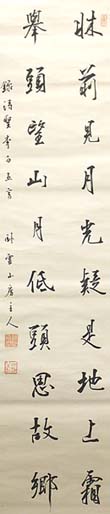 牀前見月光疑是地上霜
舉頭望山月低頭思故鄉
李白五言 臥雲山房主人